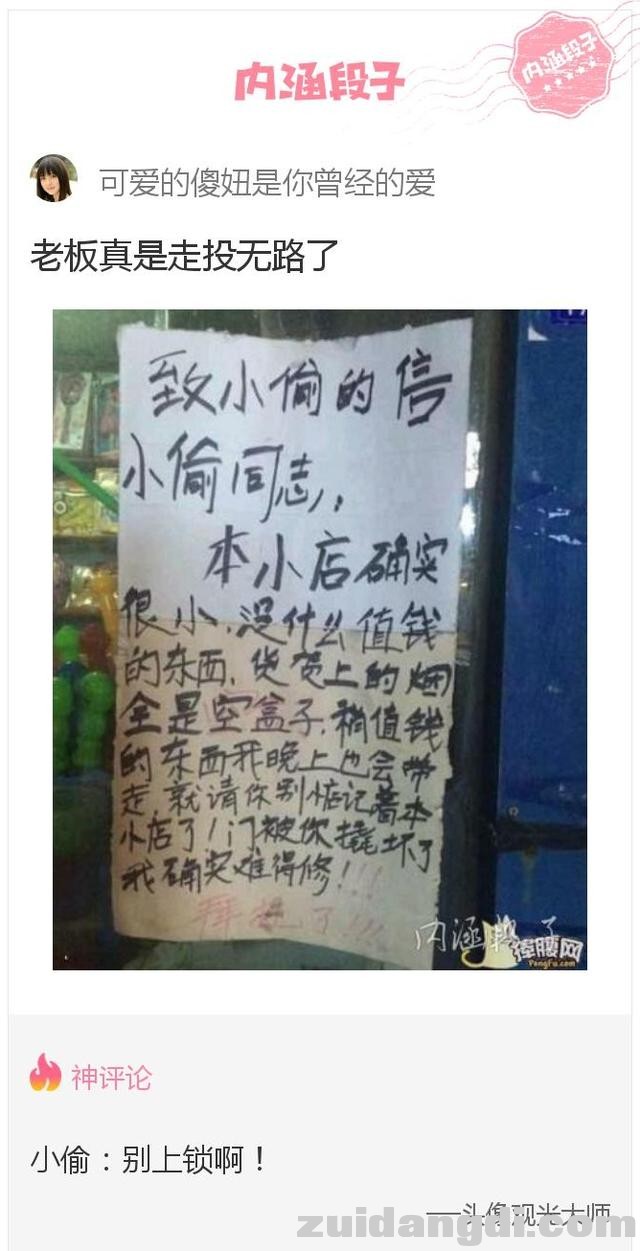 内涵段子
内涵段子
可爱的傻妞是你曾经的爱
老板真是走投无路了
致小偷的信
小偷同志,
本小店确实
很小,没什么值钱
的东西,货架上的烟
全是空盒子,稍值钱
的东西我晚上也会带
走,就请你别惦记着本
小店了!门被你撬坏了
我确实难得修!!!!
拜托了!!!
内涵段子
捧腹网
PengFu.com
神评论
小偷：别上锁啊！
——头像观光大师
zuidangdi.com